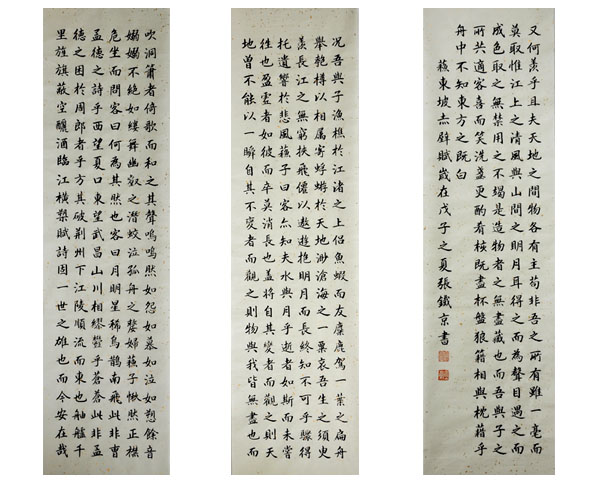 吹洞簫者倚歌而和之其聲嗚嗚然如怨如慕如泣如愬餘音
嫋嫋不絕如縷舞幽壑之潛蛟泣孤舟之嫠婦蘇子愀然正襟
危坐而問客曰何為其然也客曰月明星稀烏鵲南飛此非曹
孟德之詩乎西望夏口東望武昌山川相繆鬱乎蒼蒼此非孟
德之困於周郎者乎方其破荊州下江陵順流而東也舳艫千
里旌旗蔽空釃酒臨江橫槊賦詩固一世之雄也而今安在哉
況吾與子漁樵於江渚之上侶魚蝦而友麋鹿駕一葉之扁舟
舉匏樽以相屬寄蜉蝣於天地渺滄海之一粟哀吾生之須臾
羨長江之無窮挾飛僊以遨遊抱明月而長終知不可乎驟得
托遺響於悲風蘇子曰客亦知夫水與月乎逝者如斯而未嘗
往也盈虛者如彼而卒莫消長也蓋將自其變者而觀之則天
地曾不能以一瞬自其不變者而觀之則物與我皆無盡也而
又何羨乎且夫天地之間物各有主苟非吾之所有雖一毫而
莫取惟江上之清風與山間之明月耳得之而為聲目遇之而
成色取之無禁用之不竭是造物者之無盡藏也而吾與子之
所共適客喜而笑洗盞更酌肴核既盡杯盤狼籍相與枕藉乎
舟中不知東方之既白
蘇東坡赤壁賦歲在戊子之夏張鐵京書